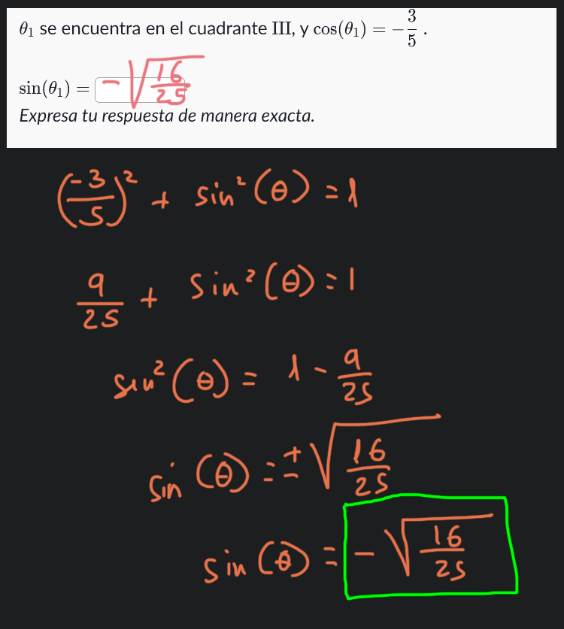 θ₁ se encuentra en el cuadrante III, y cos(θ₁) = −3/5 .
sin(θ₁) = −√(16/25)
Expresa tu respuesta de manera exacta.
(−3/5)² + sin²(θ) = 1
9/25 + sin²(θ) = 1
sin²(θ) = 1 − 9/25
sin(θ) = ±√(16/25)
sin(θ) = −√(16/25)